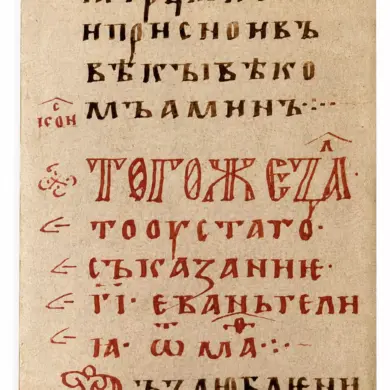 иприсноивъ
вѣкъівѣко
мъаминъ·:·-
скон
тогожезⷧа
тооустаго·
съказаниѥ·
гі· еваньгели
ꙗ· ѿ маⷴ·:·-